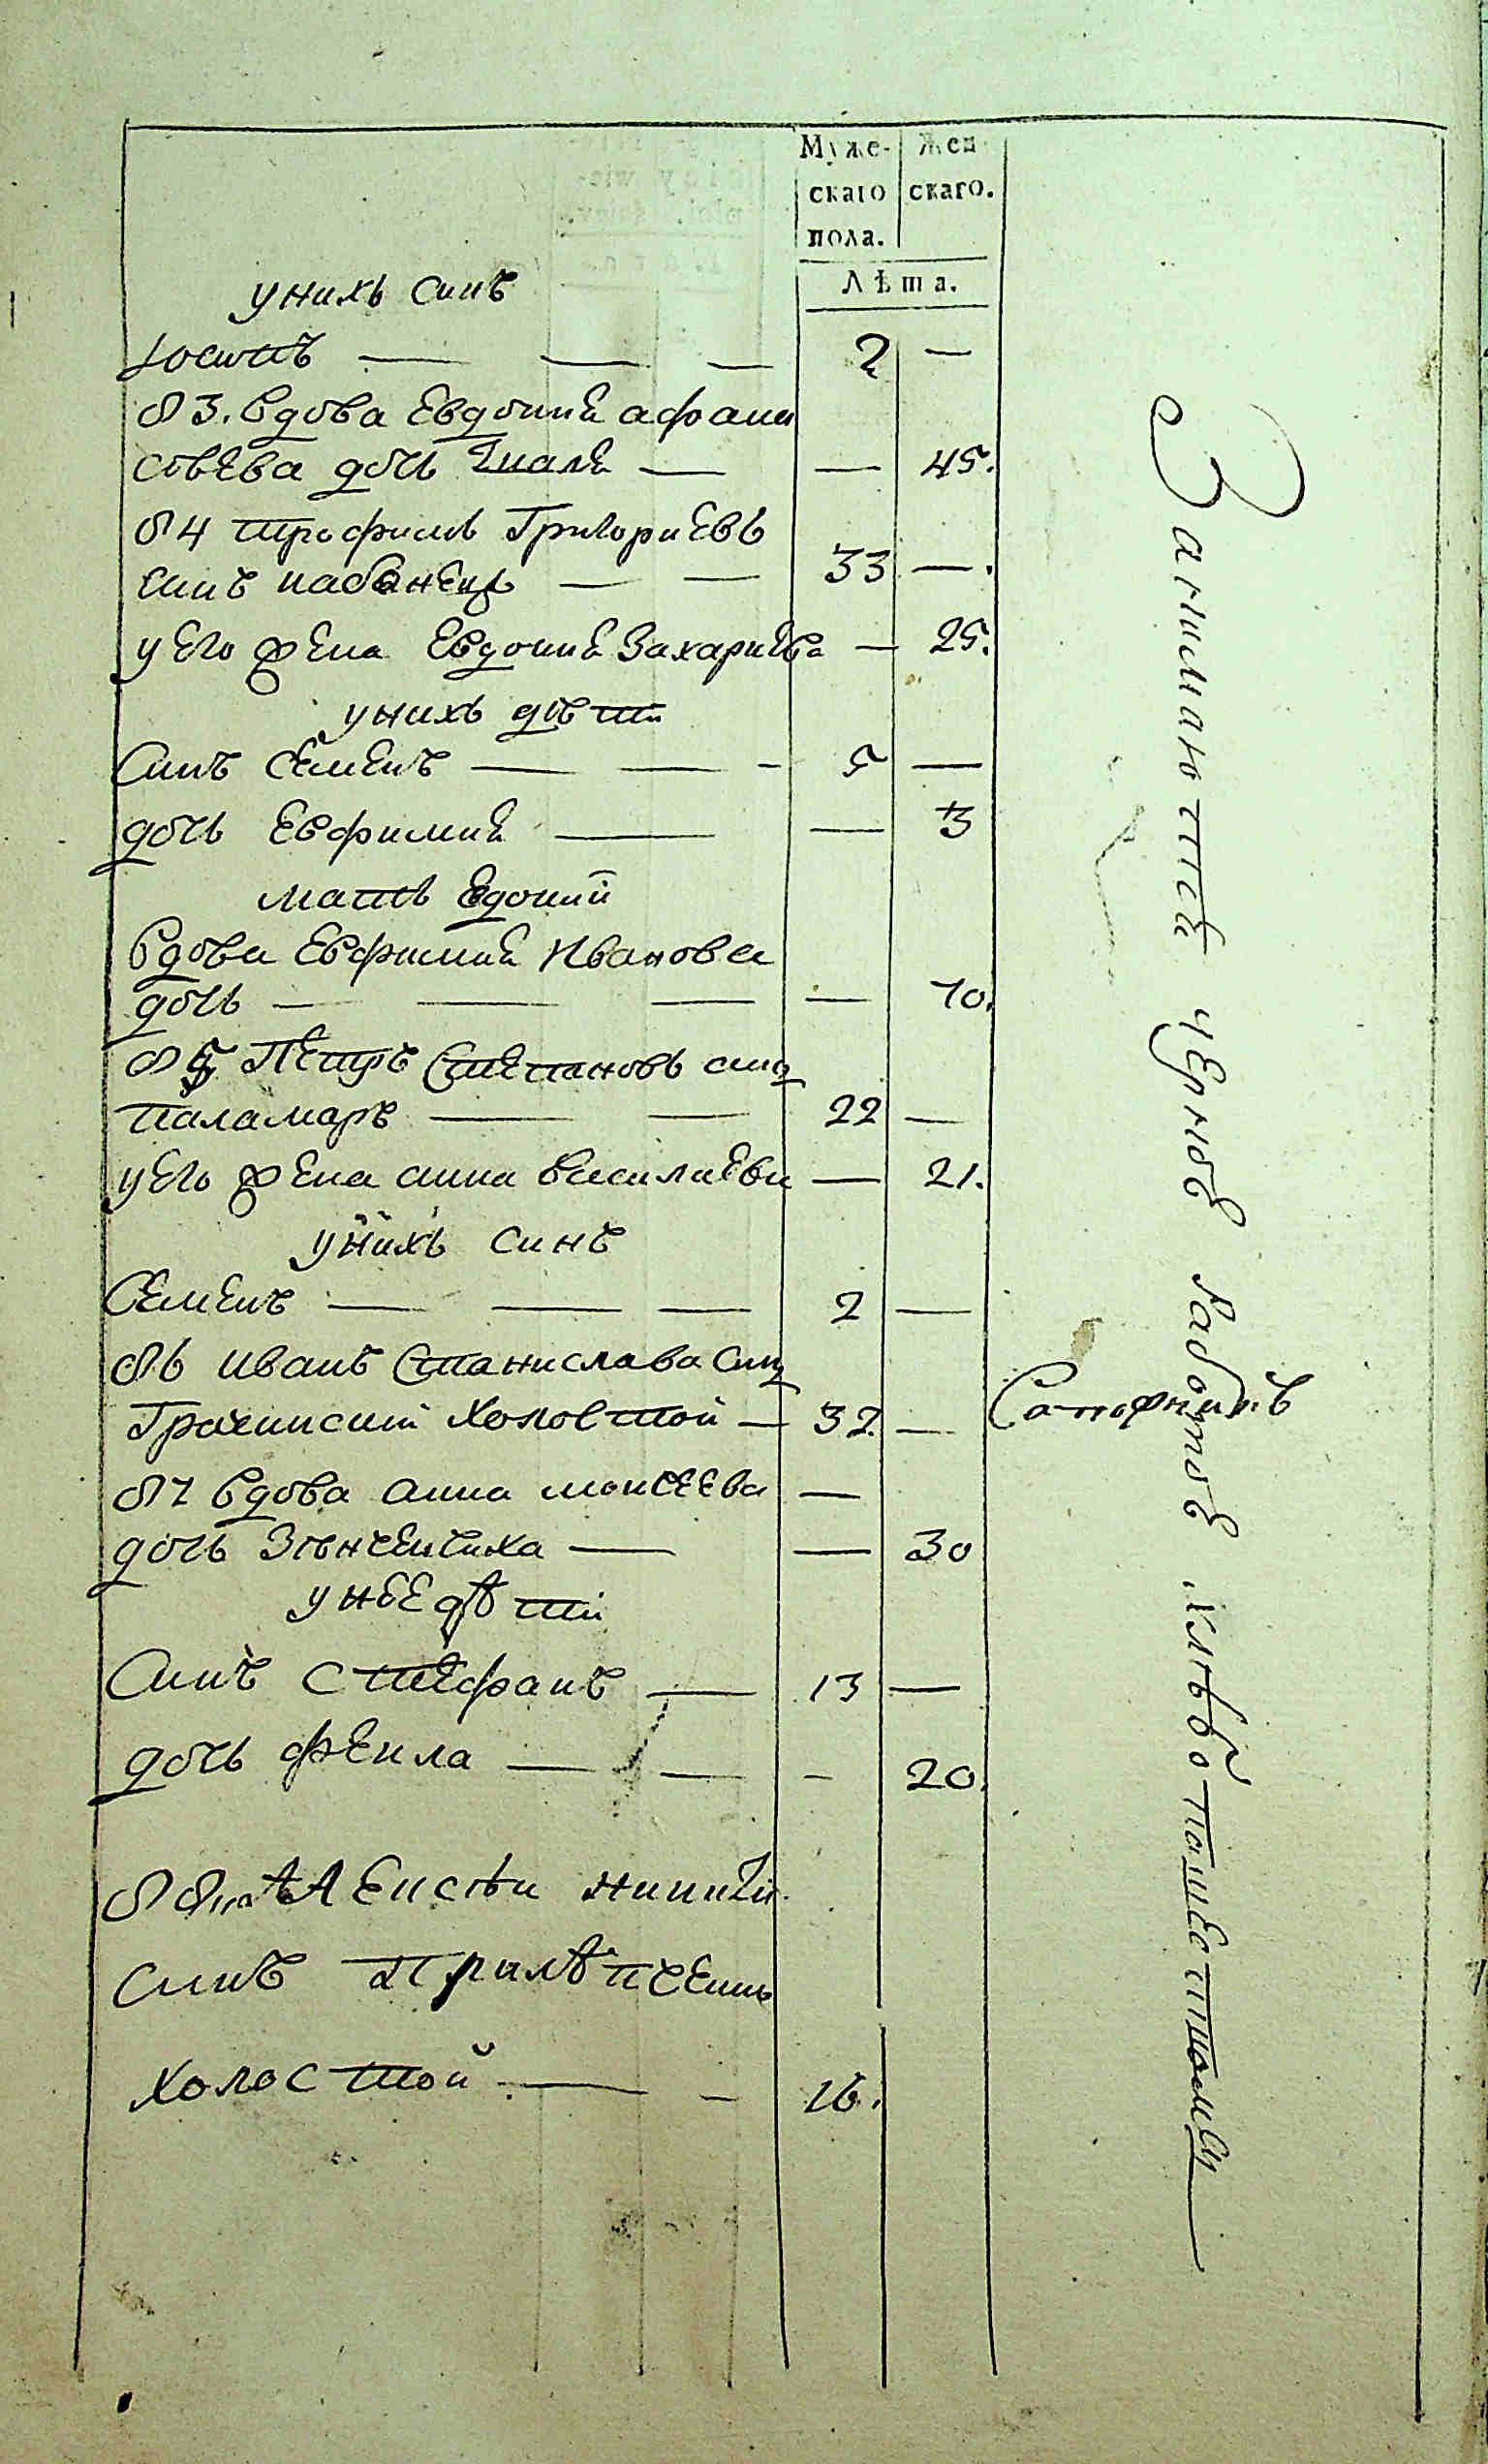 Муже- Жен
скаго скаго.
пола.
Лѣта.
унихъ синъ
Іосипъ — — — 2 —
83. вдова Евдокиѣ афана
совева дочь — — 45.
84 трофимъ Григориевъ
синъ — — 33 —.
уего жена Евдокиѣ Захариева — 25.
унихъ дѣти
Синъ Семенъ — — - 5 —
дочь Евфимиѣ — — 3
мать
вдова Евфимиѣ Иванова
дочь — — — — 70.
85 Петръ Степановъ синъ
паламаръ — — 22 —
уего жена анна василиева — 21.
унихъ синъ
Семенъ — — — 2 —
86 иванъ Станислава синъ
холостой — 32 —
87 вдова анна моисеева —
дочь — — 30
унее дѣти
Синъ стефанъ — 13 —
дочь феила — — - 20.
88
синъ
холостой — - 16.
Занимаютсѣ чернов работов хлѣбопашестномъ